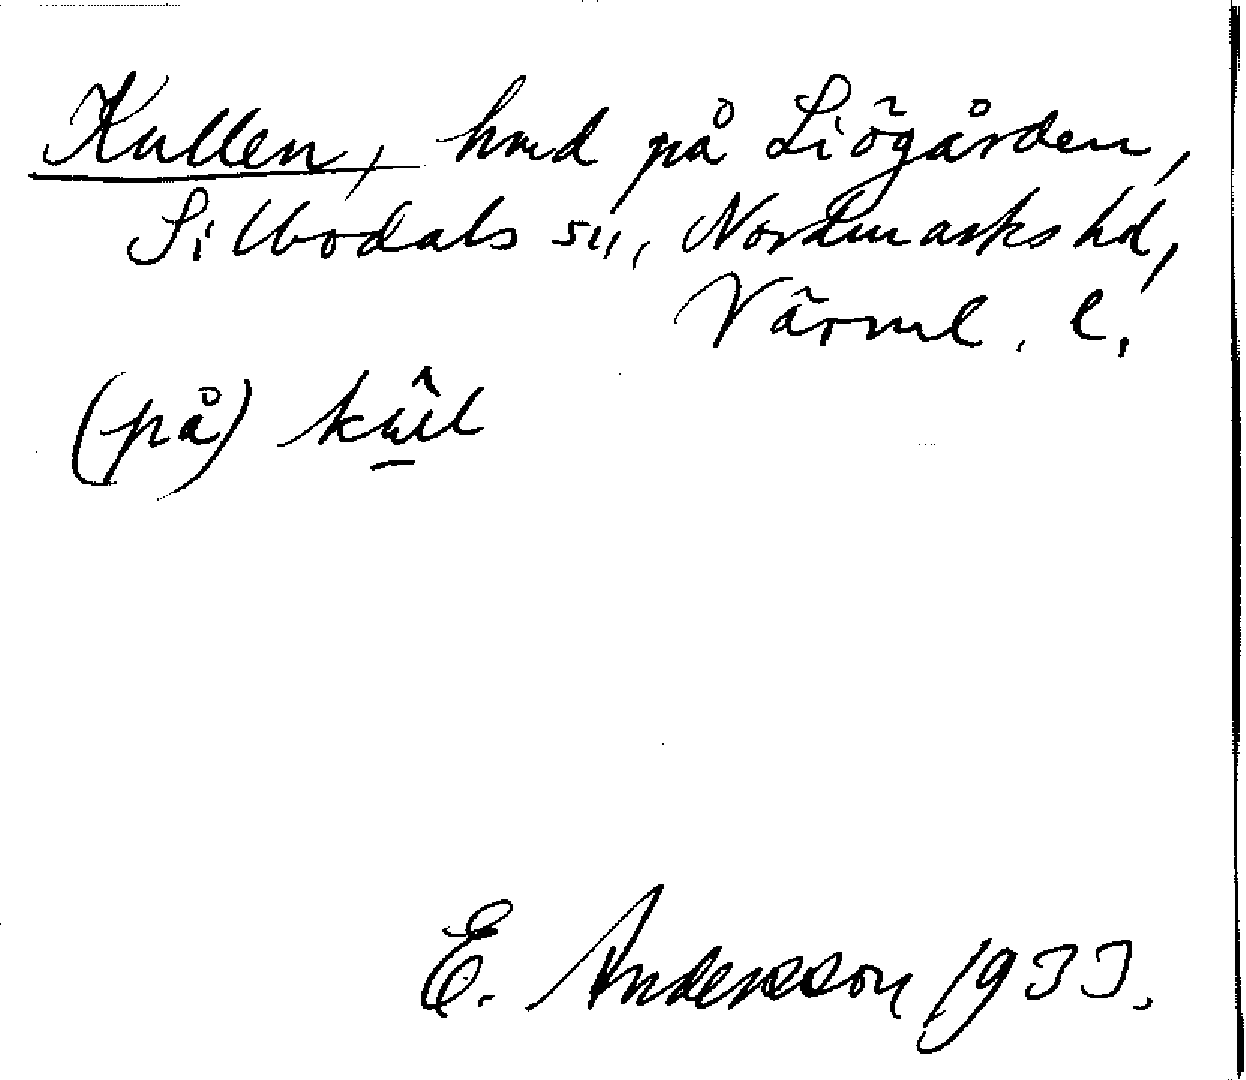 Kullen, hmd på Liögården,
Silbodals sn, Nordmarks hd,
Värml. l.
(på) kûl
E. Andersson 1933.